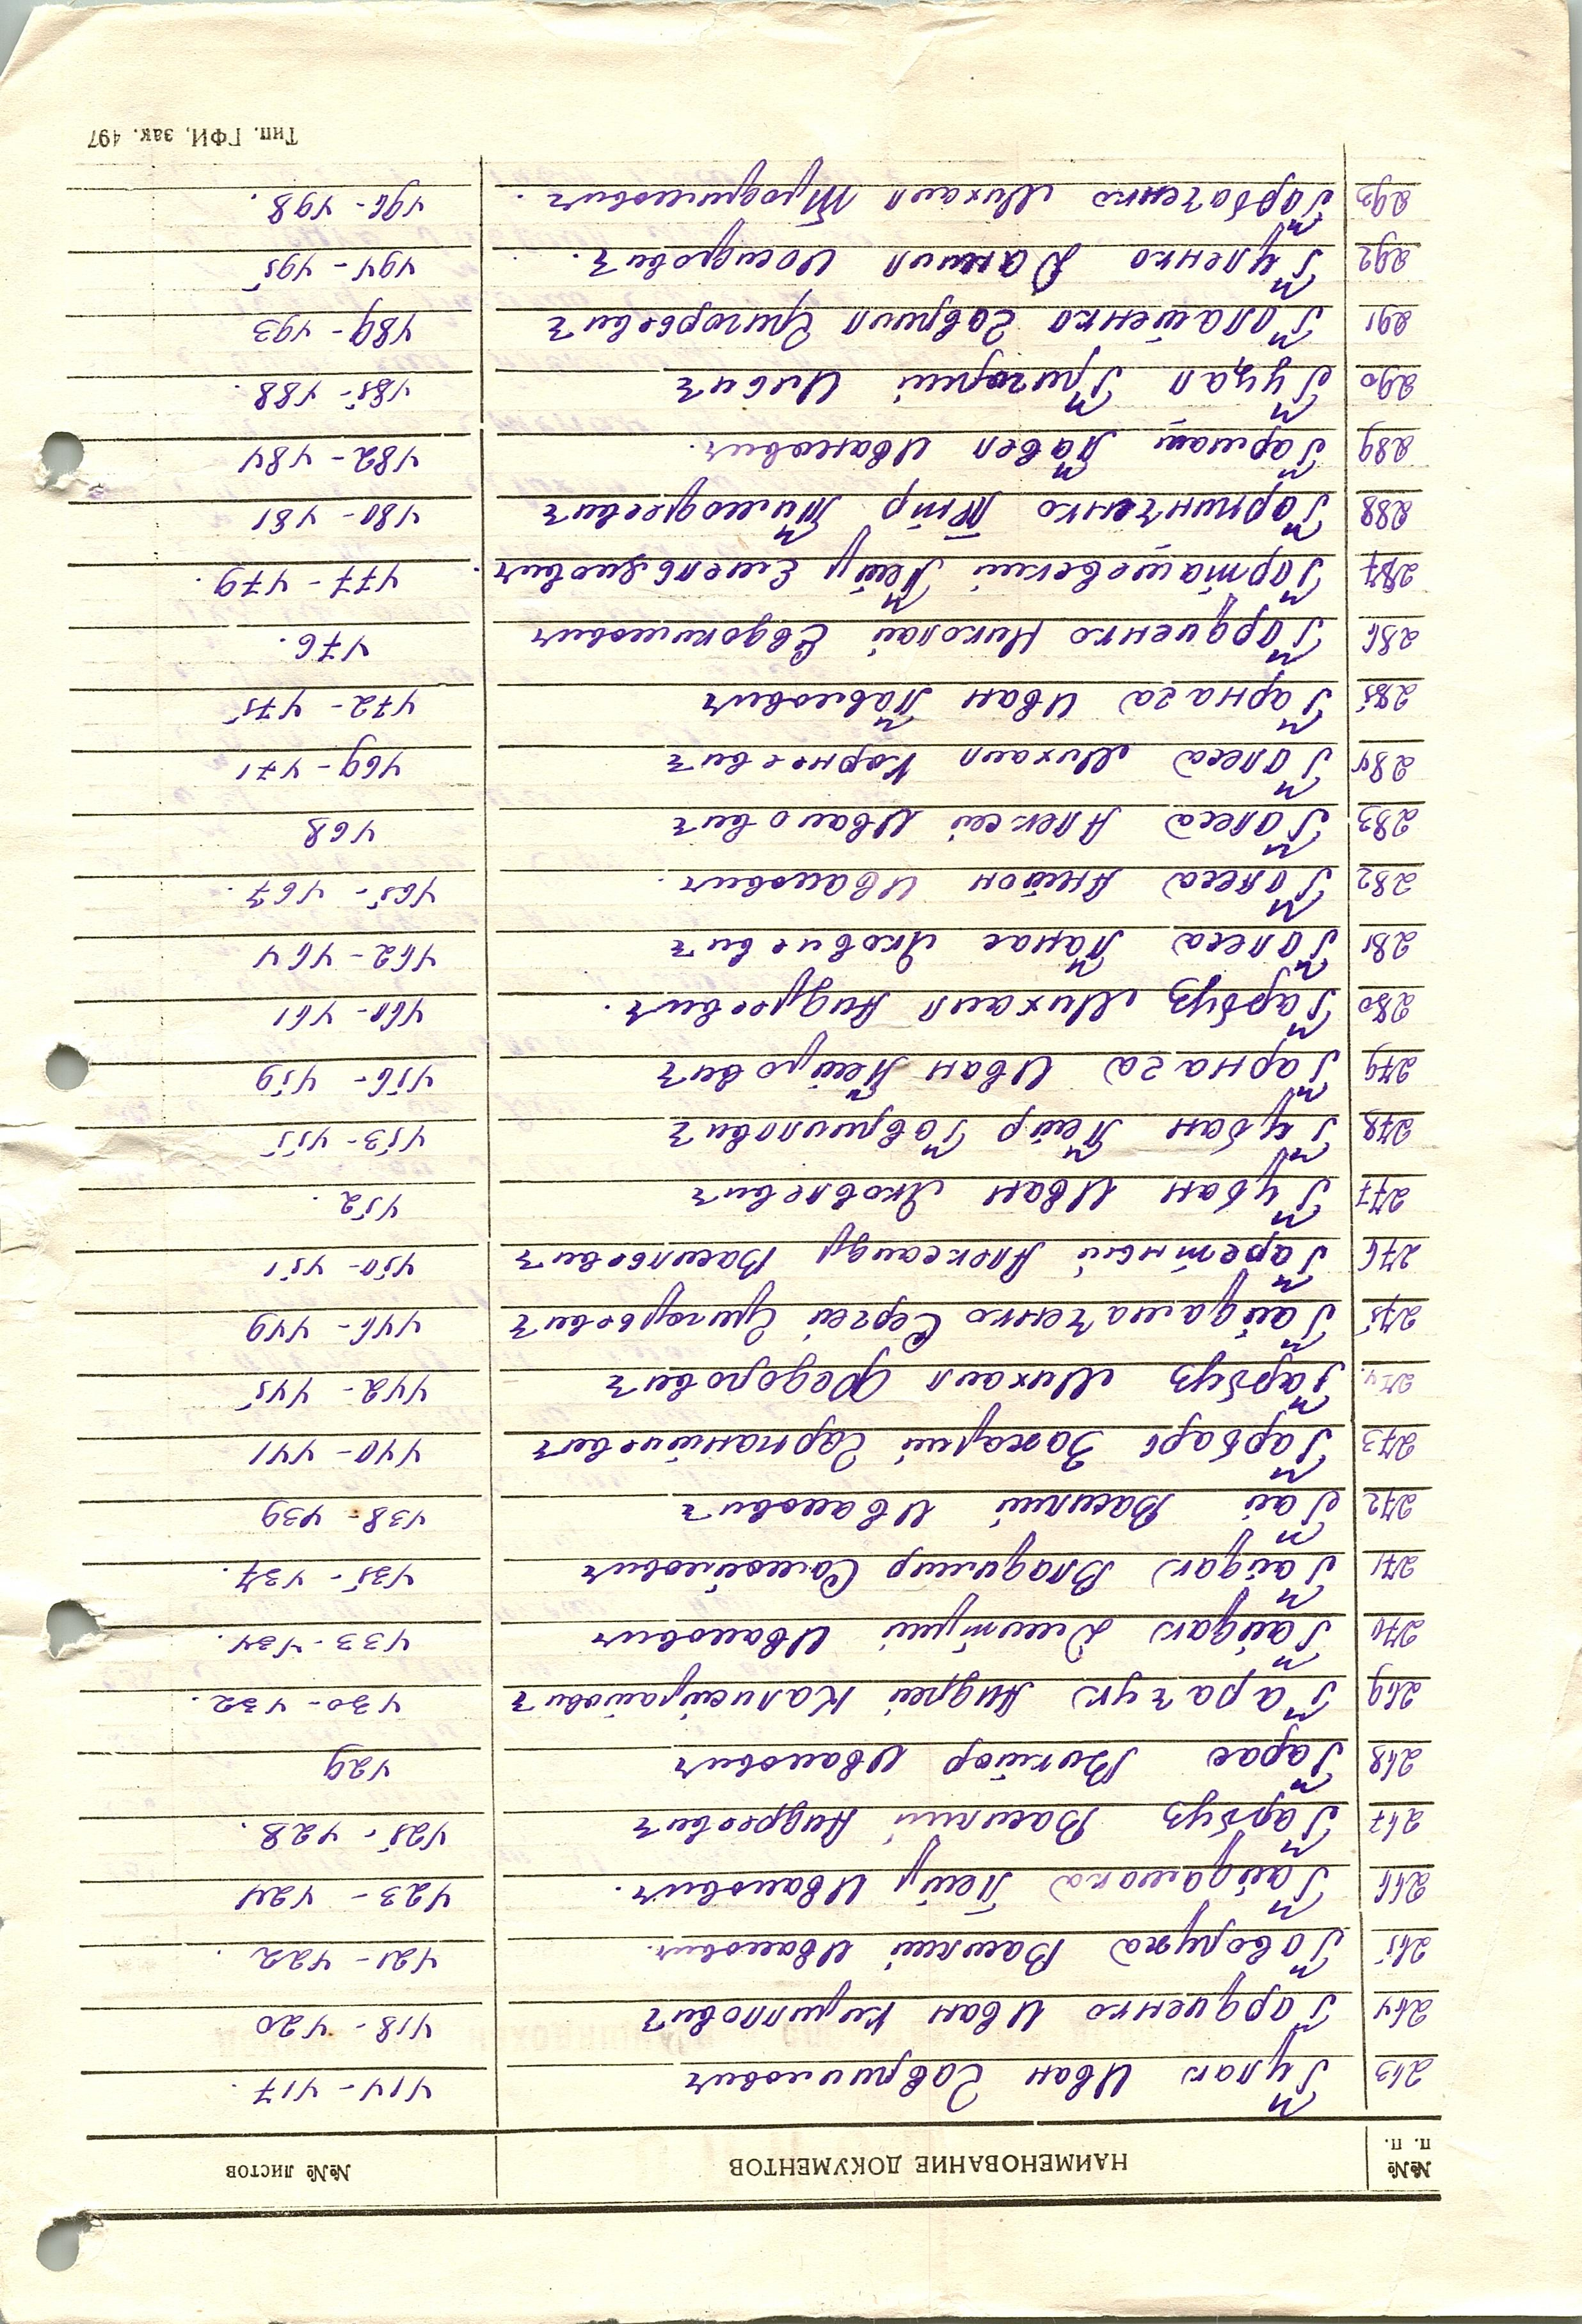 №№ п. п. НАИМЕНОВАНИЕ ДОКУМЕНТОВ №№ листов
263 Гулак Иван Гаврилович 414-417.
264 Гордиенко Иван Кириллович 418-420
265 Говоруха Василий Иванович. 421-422.
266 Гайдамака Петр Иванович. 423-424
267 Гарбуз Василий Андреевич 425-428.
268 Гарас Виктор Иванович 429
269 Гарачук Андрей Калистратович 430-432.
270 Гайдак Дмитрий Иванович 433-434.
271 Гайдак Владимир Самойлович 435-437.
272 Гай Василий Иванович 438-439
273 Гарбарь Захарий 440-441
274 Гарбуз Михаил Федорович 442-445
275 Гайдамаченко Сергей Григорьевич 446-449
276 Александр Васильевич 450-451
277 Губан Иван Яковлевич 452.
278 Губан Петр Гаврилович 453-455
279 Гарнага Иван Петрович 456-459
280 Гарбуз Михаил Андреевич. 460-461
281 Голса Панас Яковлевич 462-464
282 Голса Антон Иванович. 465-467.
283 Голса Алексей Иванович 468
284 Голса Михаил Корнеевич 469-471
285 Гарнага Иван Павлович 472-475
286 Гордиенко Николай Евдокимович 476.
287 Гарташевский Петр Емельянович. 477-479.
288 Петр Тимофеевич 480-481
289 Гармаш Павел Иванович. 482-484
290 Гуцал Григорий Ильич 485-488.
291 Гавриил Григорьевич 489-493
292 Гуленко Даниил Исидрович. 494-495
293 Горбаченко Михаил Трофимович. 496-498.
Тип. ГФИ, зак. 497